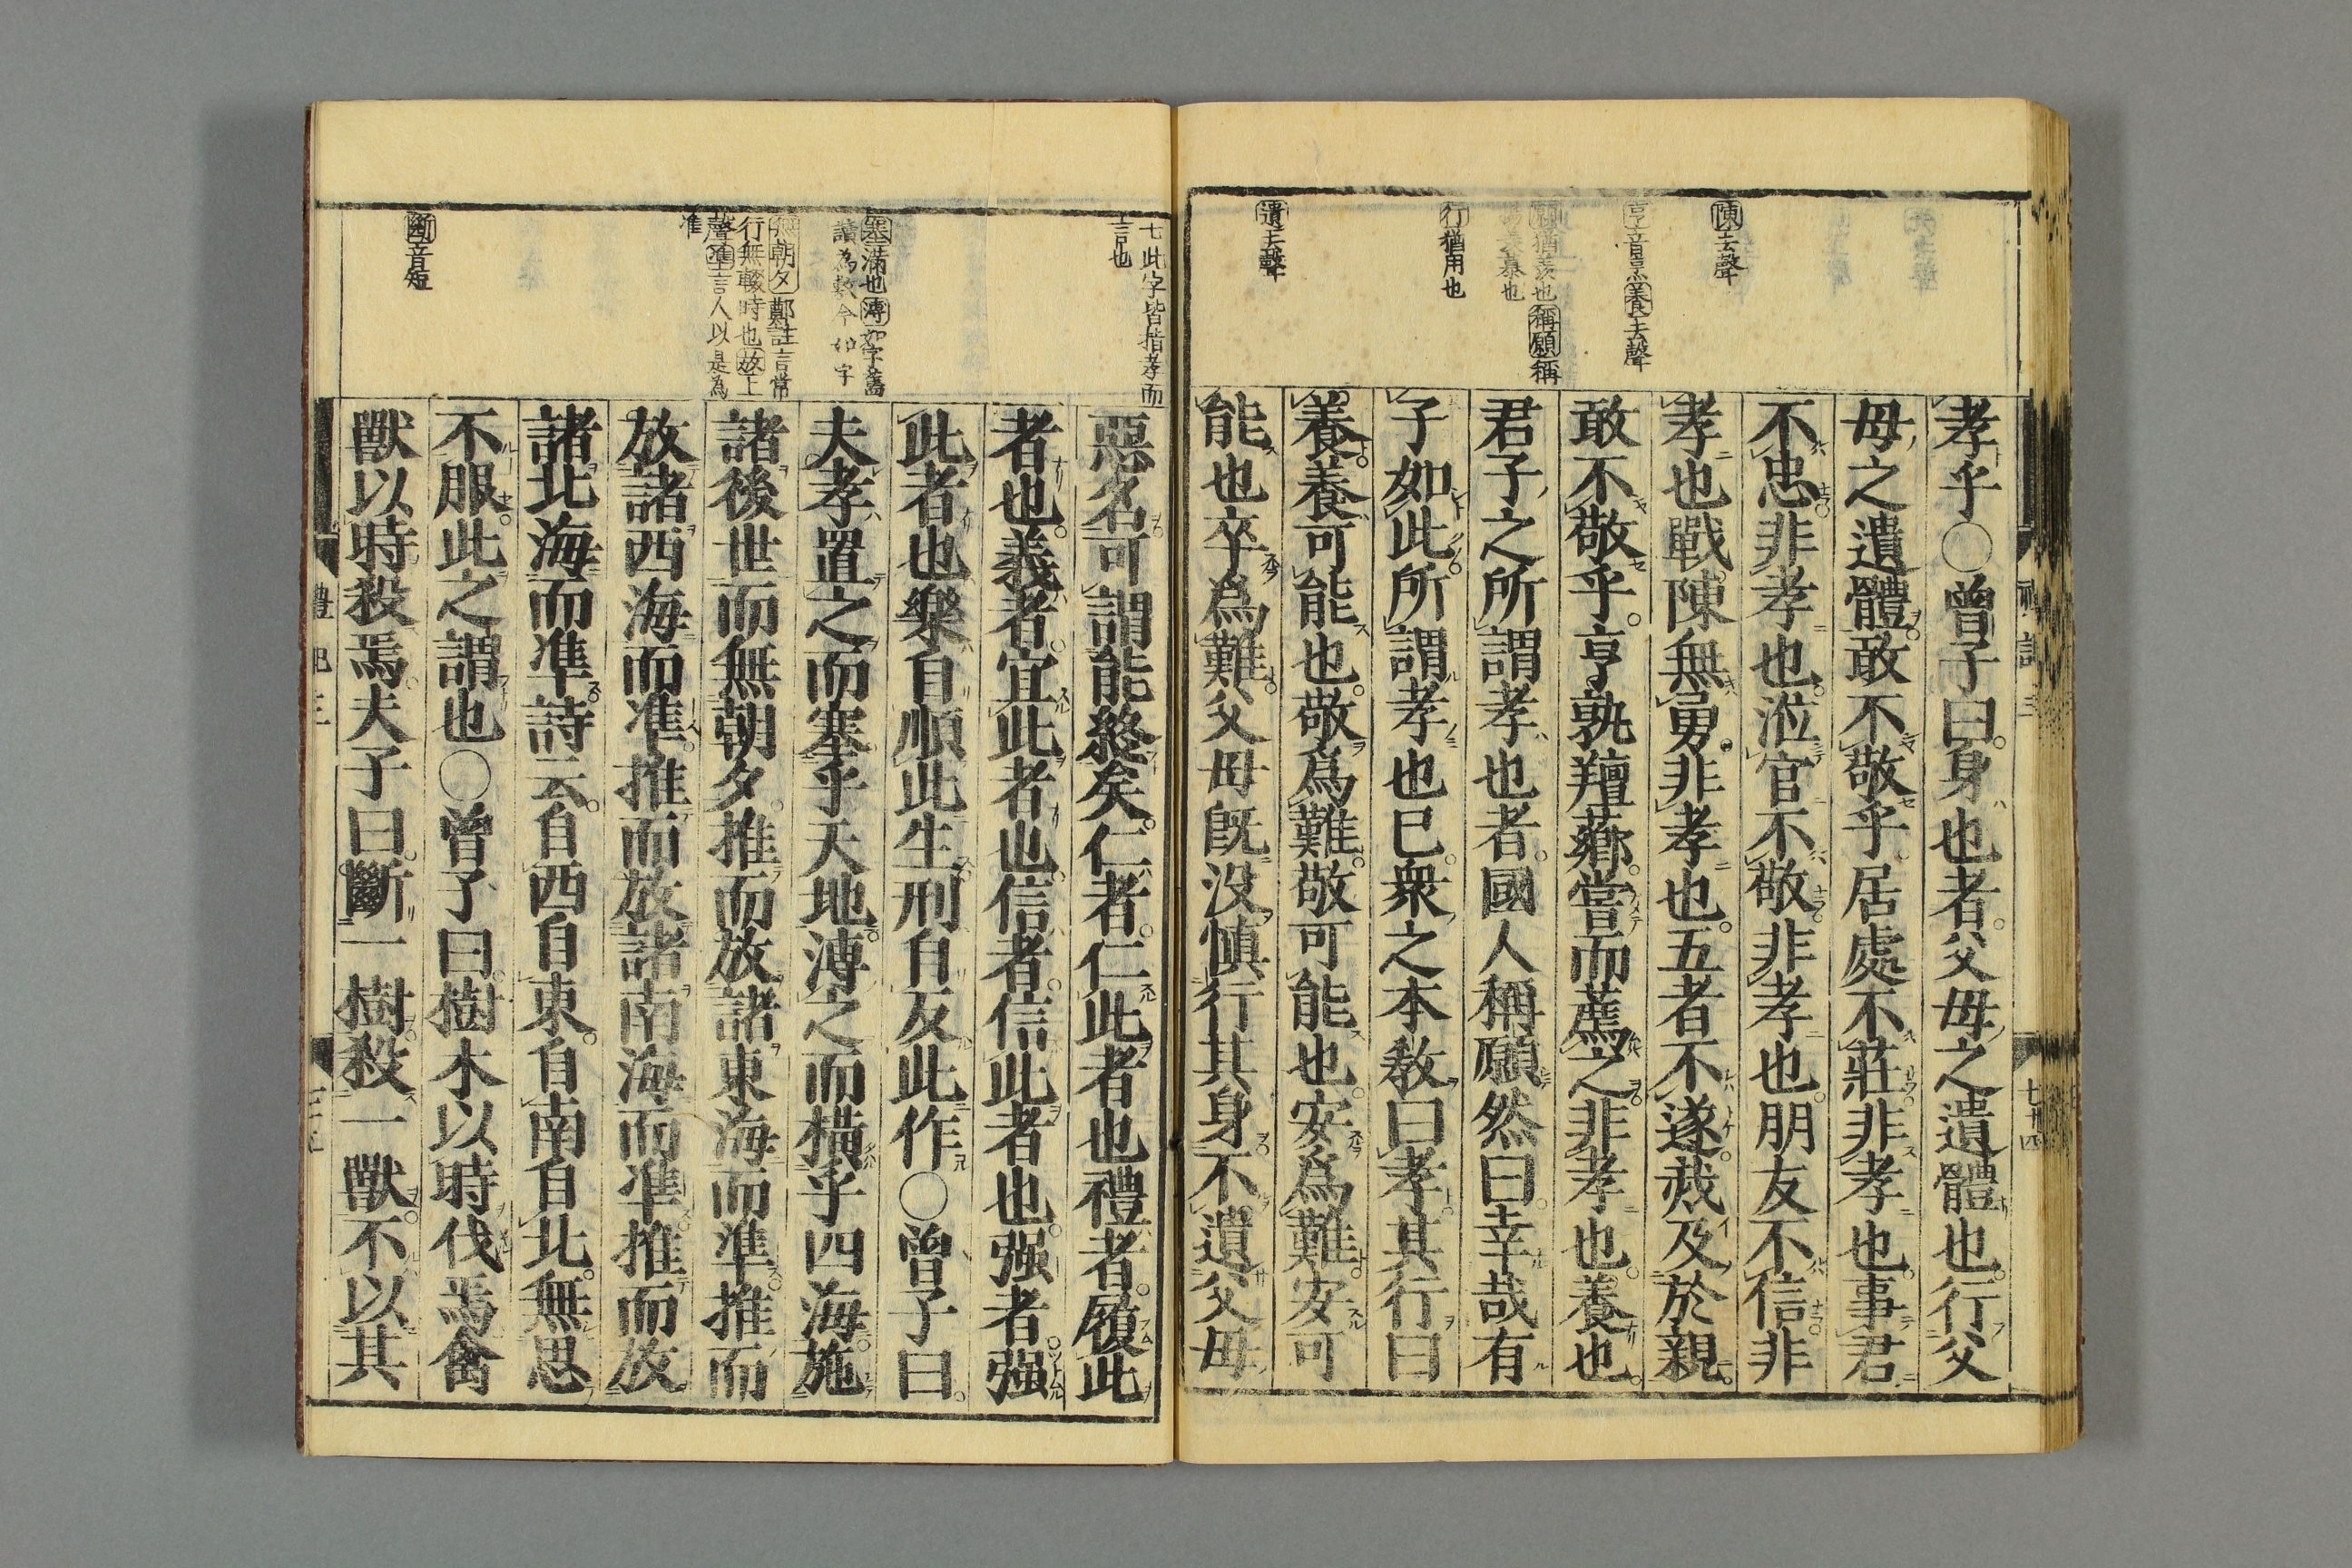 陳去聲
亨音烹養去聲
願猶羨也稱願稱
羨慕也
行猶用也
遺去聲
孝乎○曾子曰身也者父母之遺體也行父
母之遺體敢不敬乎居處不莊非孝也事君
不忠非孝也涖官不敬非孝也朋友不信非
孝也戰陳無勇非孝也五者不遂烖及於親
敢不敬乎亨孰羶薌嘗而薦之非孝也養也
君子之所謂孝也者國人稱願然曰幸哉有
子如此所謂孝也已衆之本敎曰孝其行曰
養養可能也敬爲難敬可能也安爲難安可
能也卒爲難父母旣没愼行其身不遺父母
七此字皆指孝而
言也
塞滿也溥如字舊
讀為敷今如字
無朝夕鄭註言常
行無輟時也放上
聲準言人以是為
准
斷音短
惡名可謂能終矣仁者仁此者也禮者履此
者也義者宜此者也信者信此者也强者强
此者也樂自順此生刑自反此作○曾子曰
夫孝置之而塞乎天地溥之而橫乎四海施
諸後世而無朝夕推而放諸東海而準推而
放諸西海而準推而放諸南海而準推而放
諸北海而準詩云自西自東自南自北無思
不服此之謂也○曾子曰樹木以時伐焉禽
獸以時殺焉夫子曰斷一樹殺一獸不以其
禮記三
七十四